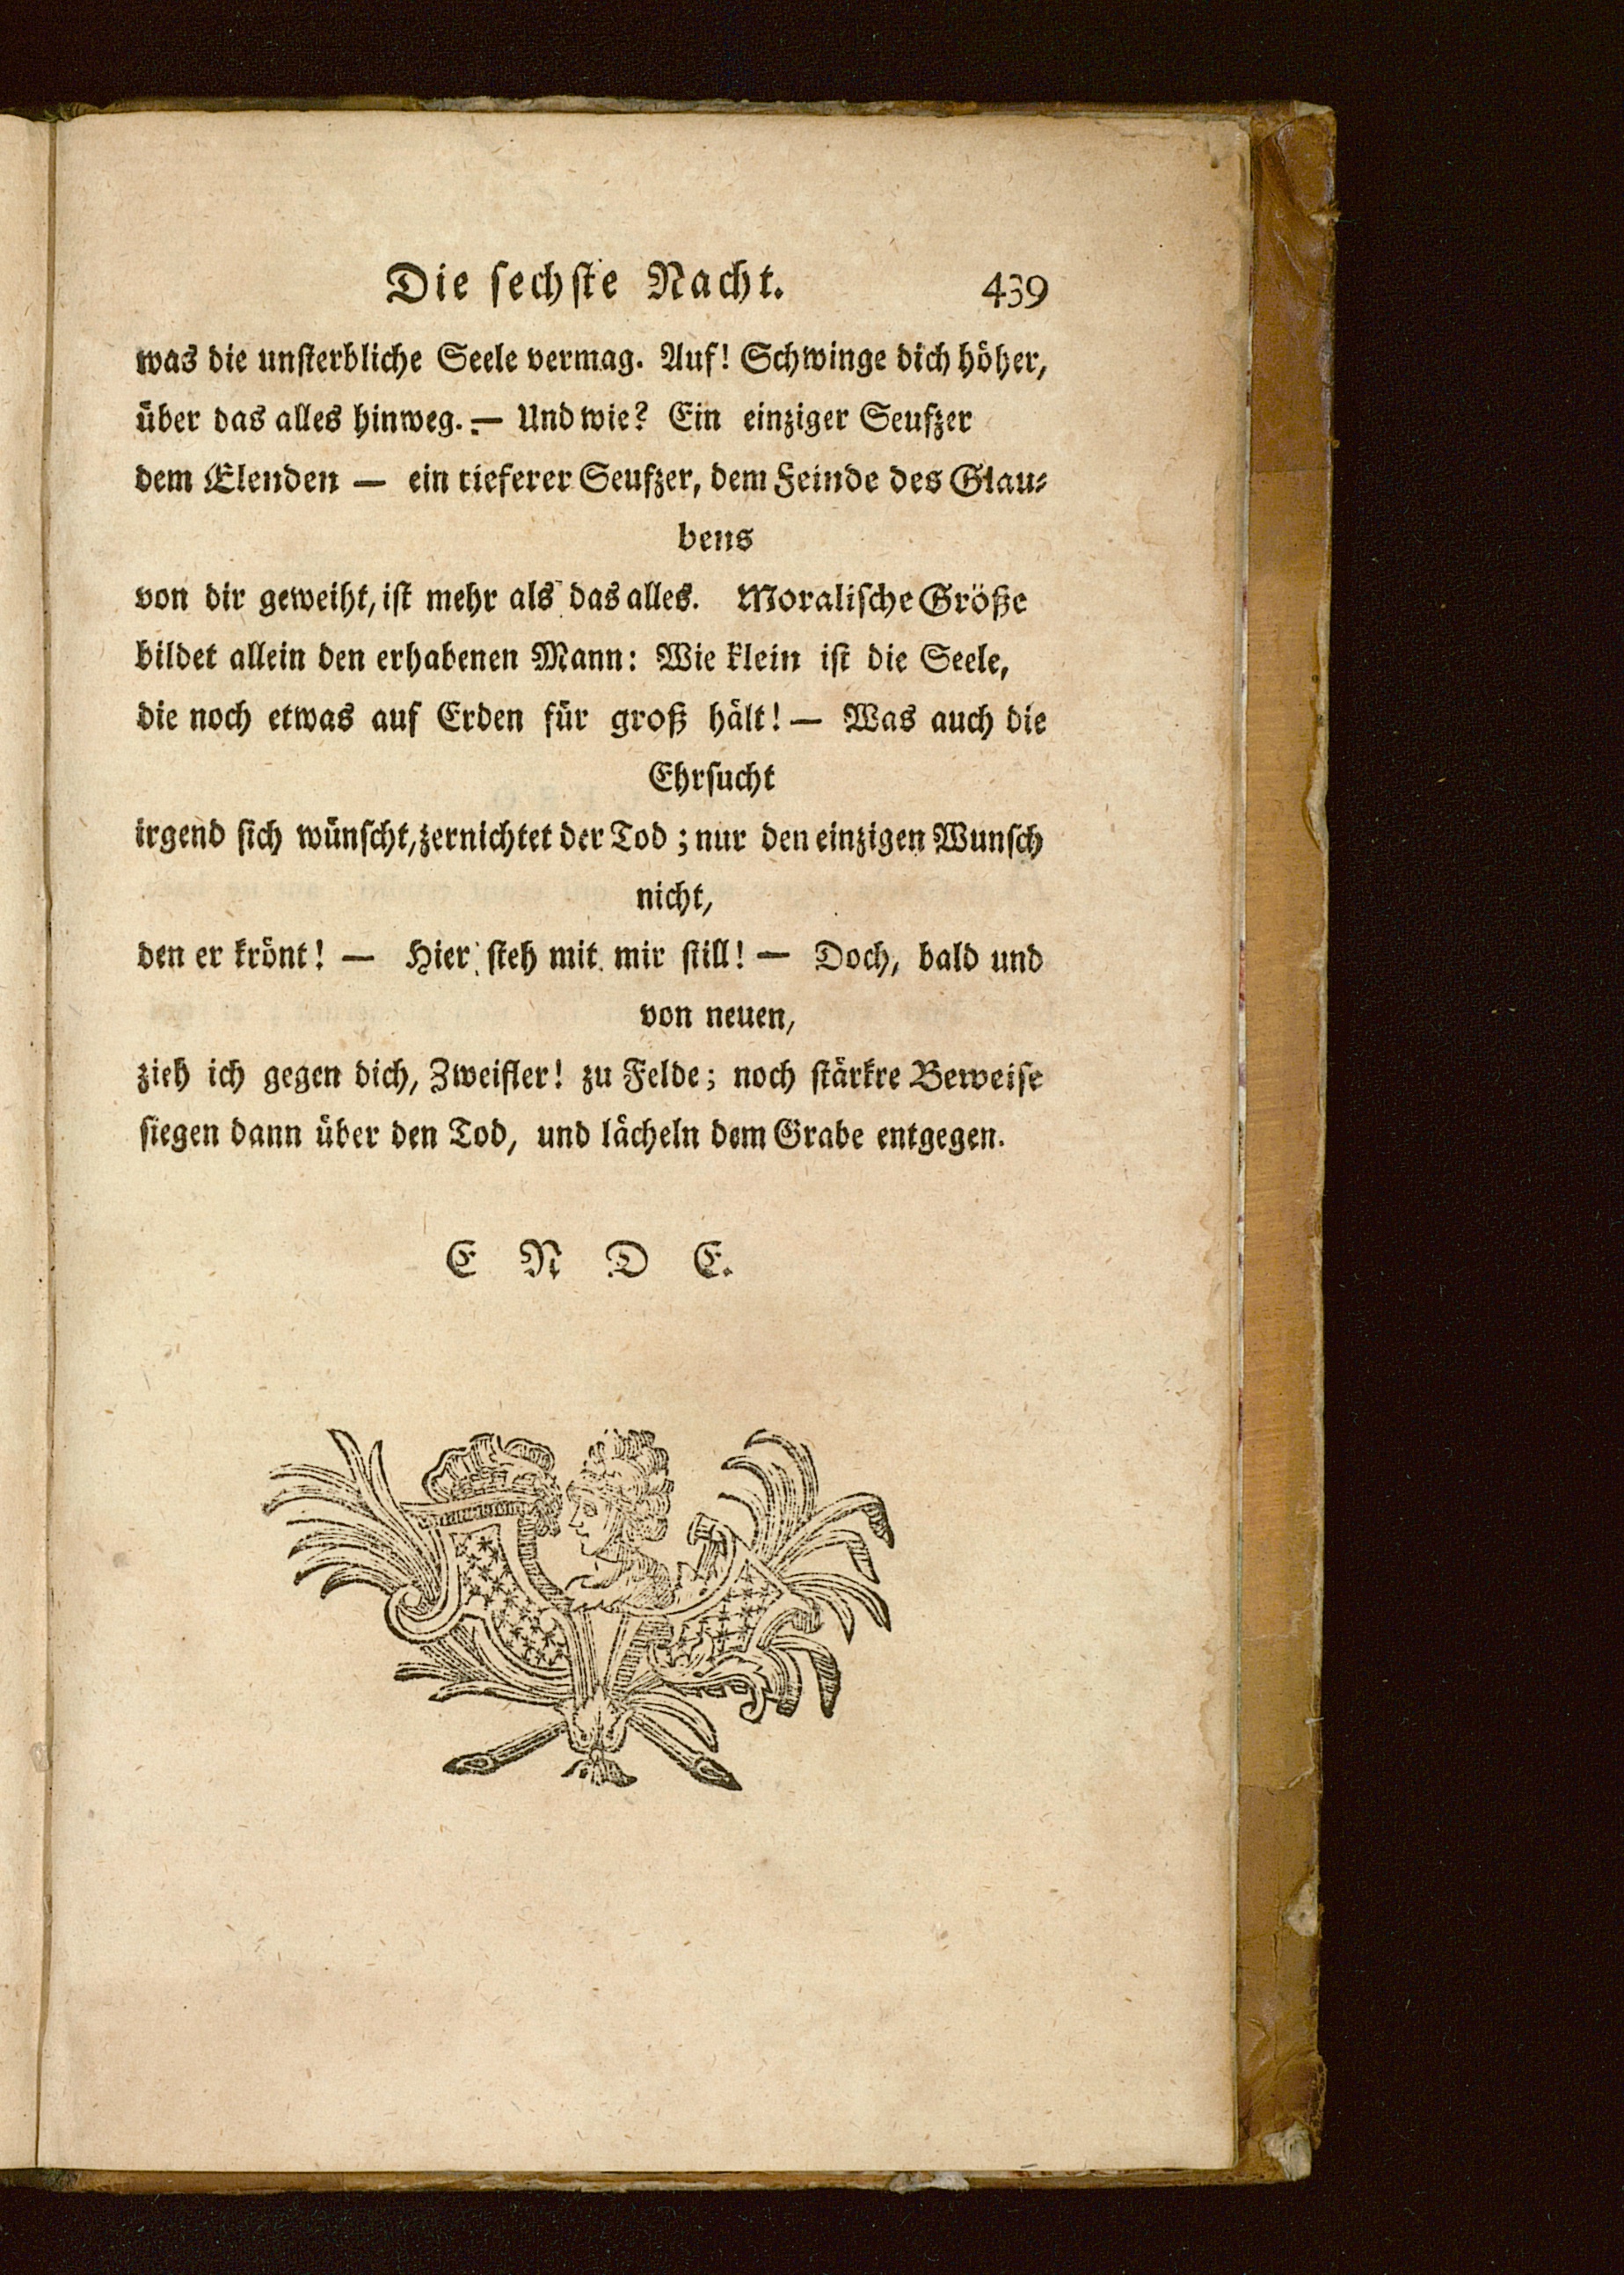 Die sechste Nacht. 439
was die unsterbliche Seele vermag. Auf! Schwinge dich höher,
über das alles hinweg. — Und wie? Ein einziger Seufzer
dem Elenden — ein tieferer Seufzer, dem Feinde des Glau-
bens
von dir geweiht, ist mehr als das alles. Moralische Größe
bildet allein den erhabenen Mann: Wie klein ist die Seele,
die noch etwas auf Erden für groß hält! — Was auch die
Ehrsucht
irgend sich wünscht, zernichtet der Tod; nur den einzigen Wunsch
nicht,
den er krönt! — Hier steh mit mir still! — Doch, bald und
von neuen,
zieh ich gegen dich, Zweifler! zu Felde; noch stärkre Beweise
siegen dann über den Tod, und lächeln dem Grabe entgegen.
E N D E.